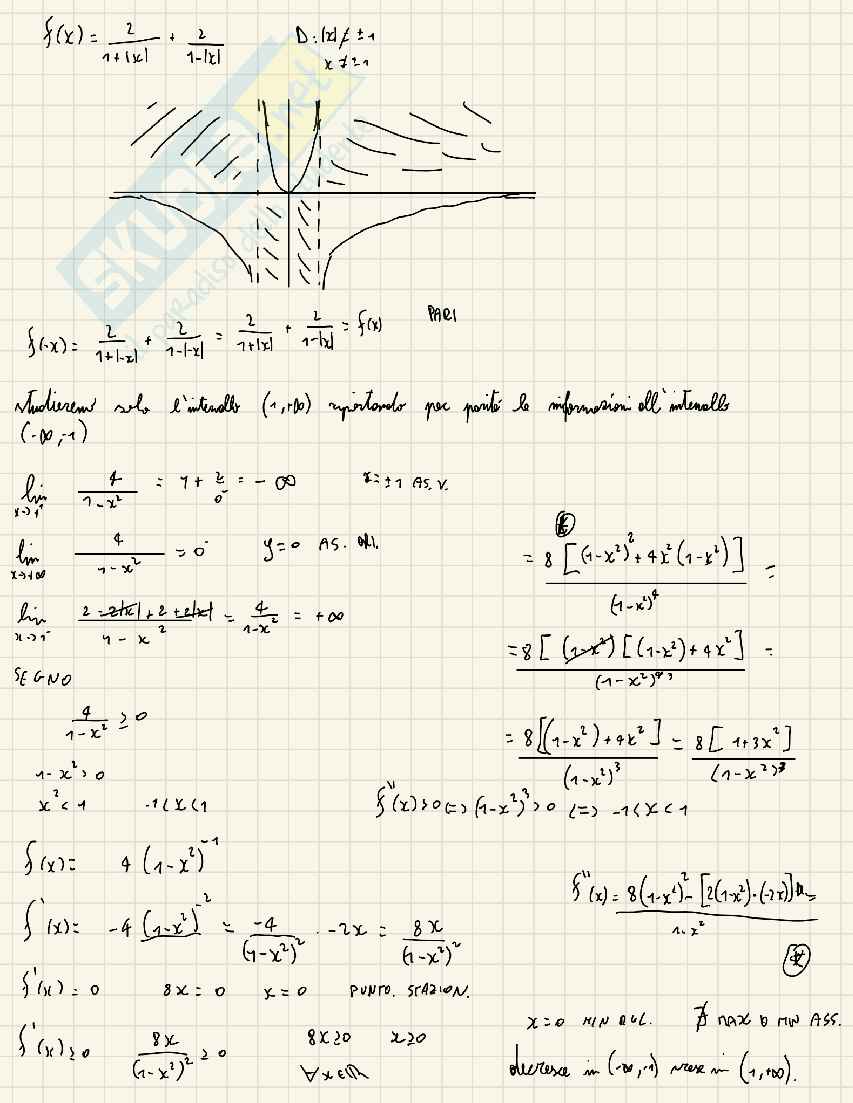 f(x) = 2/(1+|x|) + 2/(1-|x|)    D: |x| ≠ ±1
x ≠ ±1
SKUOLA.net
il paradiso dello studente
f(-x) = 2/(1+|-x|) + 2/(1-|-x|) = 2/(1+|x|) + 2/(1-|x|) = f(x)    PARI
studieremo solo l'intervallo (1,+∞) riportando per parità le informazioni all'intervallo
(-∞,-1)
lim x→1⁺ 4/(1-x²) = 4 + 2/0⁻ = -∞    x=±1 AS. V.
lim x→+∞ 4/(1-x²) = 0⁻    y=0 AS. ORI.
lim x→1⁻ (2-2|x|+2+2|x|)/(1-x²) = 4/(1-x²) = +∞
SEGNO
4/(1-x²) ≥ 0
1-x² > 0
x² < 1    -1<x<1
f(x) = 4(1-x²)⁻¹
f'(x) = -4(1-x²)⁻² = -4/(1-x²)² · -2x = 8x/(1-x²)²
f'(x) = 0    8x = 0    x = 0    PUNTO. STAZION.
f'(x) ≥ 0    8x/(1-x²)² ≥ 0    8x ≥ 0    x ≥ 0
∀x∈ℝ
= 8[(1-x²)²+4x²(1-x²)]/(1-x²)⁴ =
= 8[(1-x²)[(1-x²)+4x²]/(1-x²)⁴³ =
= 8[(1-x²)+4x²]/(1-x²)³ = 8[1+3x²]/(1-x²)³
f''(x) > 0 <=> (1-x²)³ > 0 <=> -1<x<1
f''(x) = 8(1-x²)² - [2(1-x²)·(-2x)] =
1-x²
x=0 MIN REL.    ∄ MAX O MIN ASS.
decresce in (-∞,-1) cresce in (1,+∞).